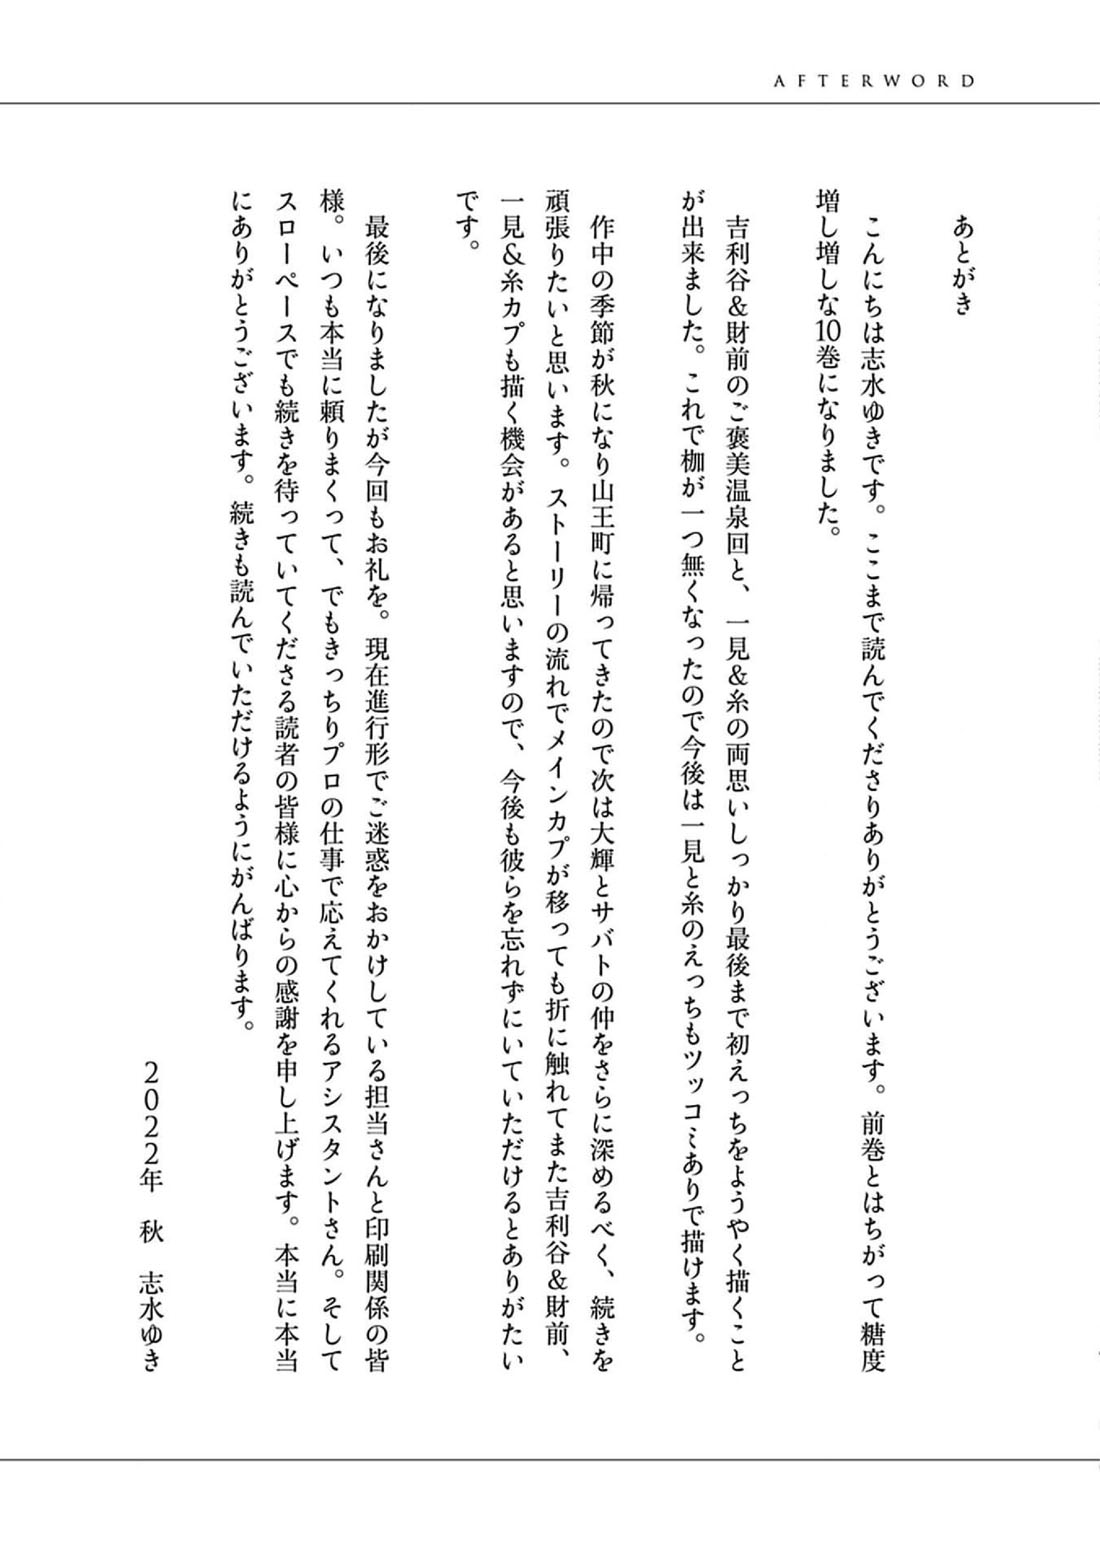 AFTERWORD
あとがき
こんにちは志水ゆきです。ここまで読んでくださりありがとうございます。前巻とはちがって糖度
増し増しな10巻になりました。
吉利谷＆財前のご褒美温泉回と、一見＆糸の両思いしっかり最後まで初えっちをようやく描くこと
が出来ました。これで枷が一つ無くなったので今後は一見と糸のえっちもツッコミありで描けます。
作中の季節が秋になり山王町に帰ってきたので次は大輝とサバトの仲をさらに深めるべく、続きを
頑張りたいと思います。ストーリーの流れでメインカプが移っても折に触れてまた吉利谷＆財前、
一見＆糸カプも描く機会があると思いますので、今後も彼らを忘れずにいていただけるとありがたい
です。
最後になりましたが今回もお礼を。現在進行形でご迷惑をおかけしている担当さんと印刷関係の皆
様。いつも本当に頼りまくって、でもきっちりプロの仕事で応えてくれるアシスタントさん。そして
スローペースでも続きを待っていてくださる読者の皆様に心からの感謝を申し上げます。本当に本当
にありがとうございます。続きも読んでいただけるようにがんばります。
2022年　秋　志水ゆき